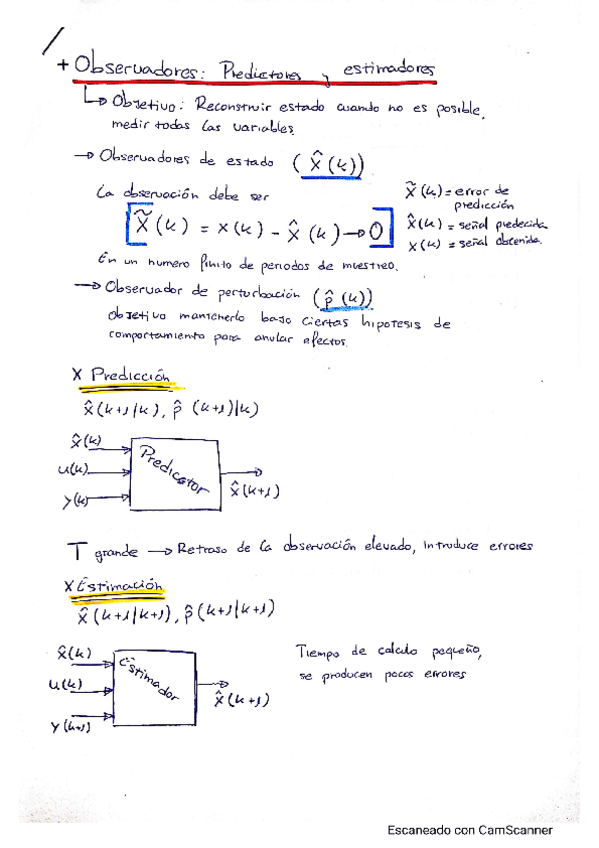 + Observadores: Predictores y estimadores
↳ Objetivo: Reconstruir estado cuando no es posible,
medir todas las variables.
→ Observadores de estado (x̂(k))
La observación debe ser
[x̃(k) = x(k) - x̂(k) → 0]
x̃(k) = error de
predicción
x̂(k) = señal predecida
x(k) = señal obtenida.
En un numero finito de periodos de muestreo.
→ Observador de perturbación (p̂(k))
Objetivo mantenerlo bajo ciertas hipotesis de
comportamiento para anular efectos.
X Predicción
x̂(k+1|k), p̂ (k+1)|k)
x̂(k)
u(k)
y(k)
Predicator
x̂(k+1)
T grande → Retraso de la observación elevado, introduce errores
X Estimación
x̂(k+1|k+1), p̂(k+1|k+1)
x̂(k)
u(k)
y(k+1)
Estimador
x̂(k+1)
Tiempo de calculo pequeño,
se producen pocos errores
Escaneado con CamScanner